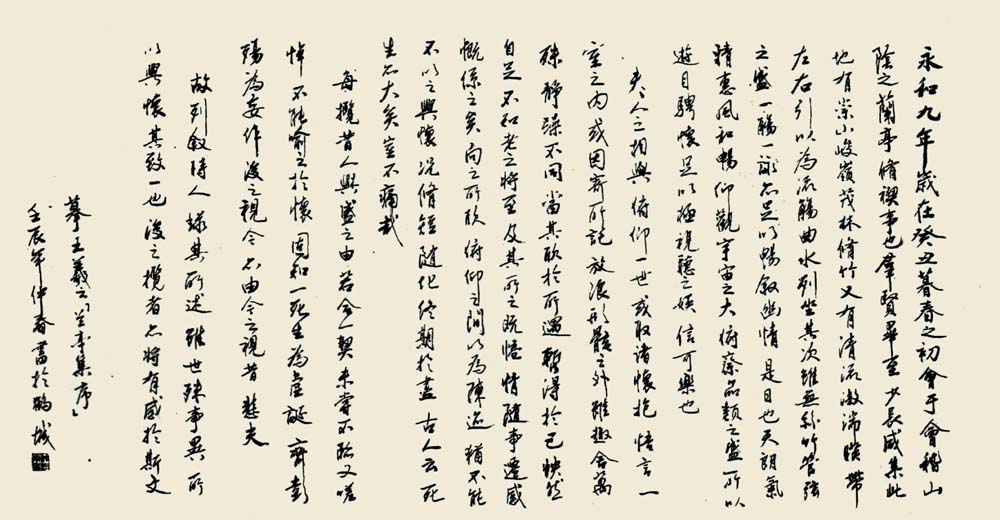 永和九年歲在癸丑暮春之初會于會稽山
陰之蘭亭脩禊事也羣賢畢至少長咸集此
地有崇山峻嶺茂林脩竹又有清流激湍暎帶
左右引以為流觴曲水列坐其次雖無絲竹管弦
之盛一觴一詠亦足以暢敘幽情是日也天朗氣
清惠風和暢仰觀宇宙之大俯察品類之盛所以
遊目騁懷足以極視聽之娛信可樂也
夫人之相與俯仰一世或取諸懷抱悟言一
室之內或因寄所託放浪形骸之外雖趣舍萬
殊靜躁不同當其欣於所遇暫得於己怏然
自足不知老之將至及其所之既惓情隨事遷感
慨係之矣向之所欣俯仰之間以為陳迹猶不能
不以之興懷況脩短隨化終期於盡古人云死
生亦大矣豈不痛哉
每攬昔人興感之由若合一契未嘗不臨文嗟
悼不能喻之於懷固知一死生為虛誕齊彭
殤為妄作後之視今亦由今之視昔悲夫
故列敘時人錄其所述雖世殊事異所
以興懷其致一也後之攬者亦將有感於斯文
摹王羲之「蘭亭集序」
壬辰年仲春書於鵬城